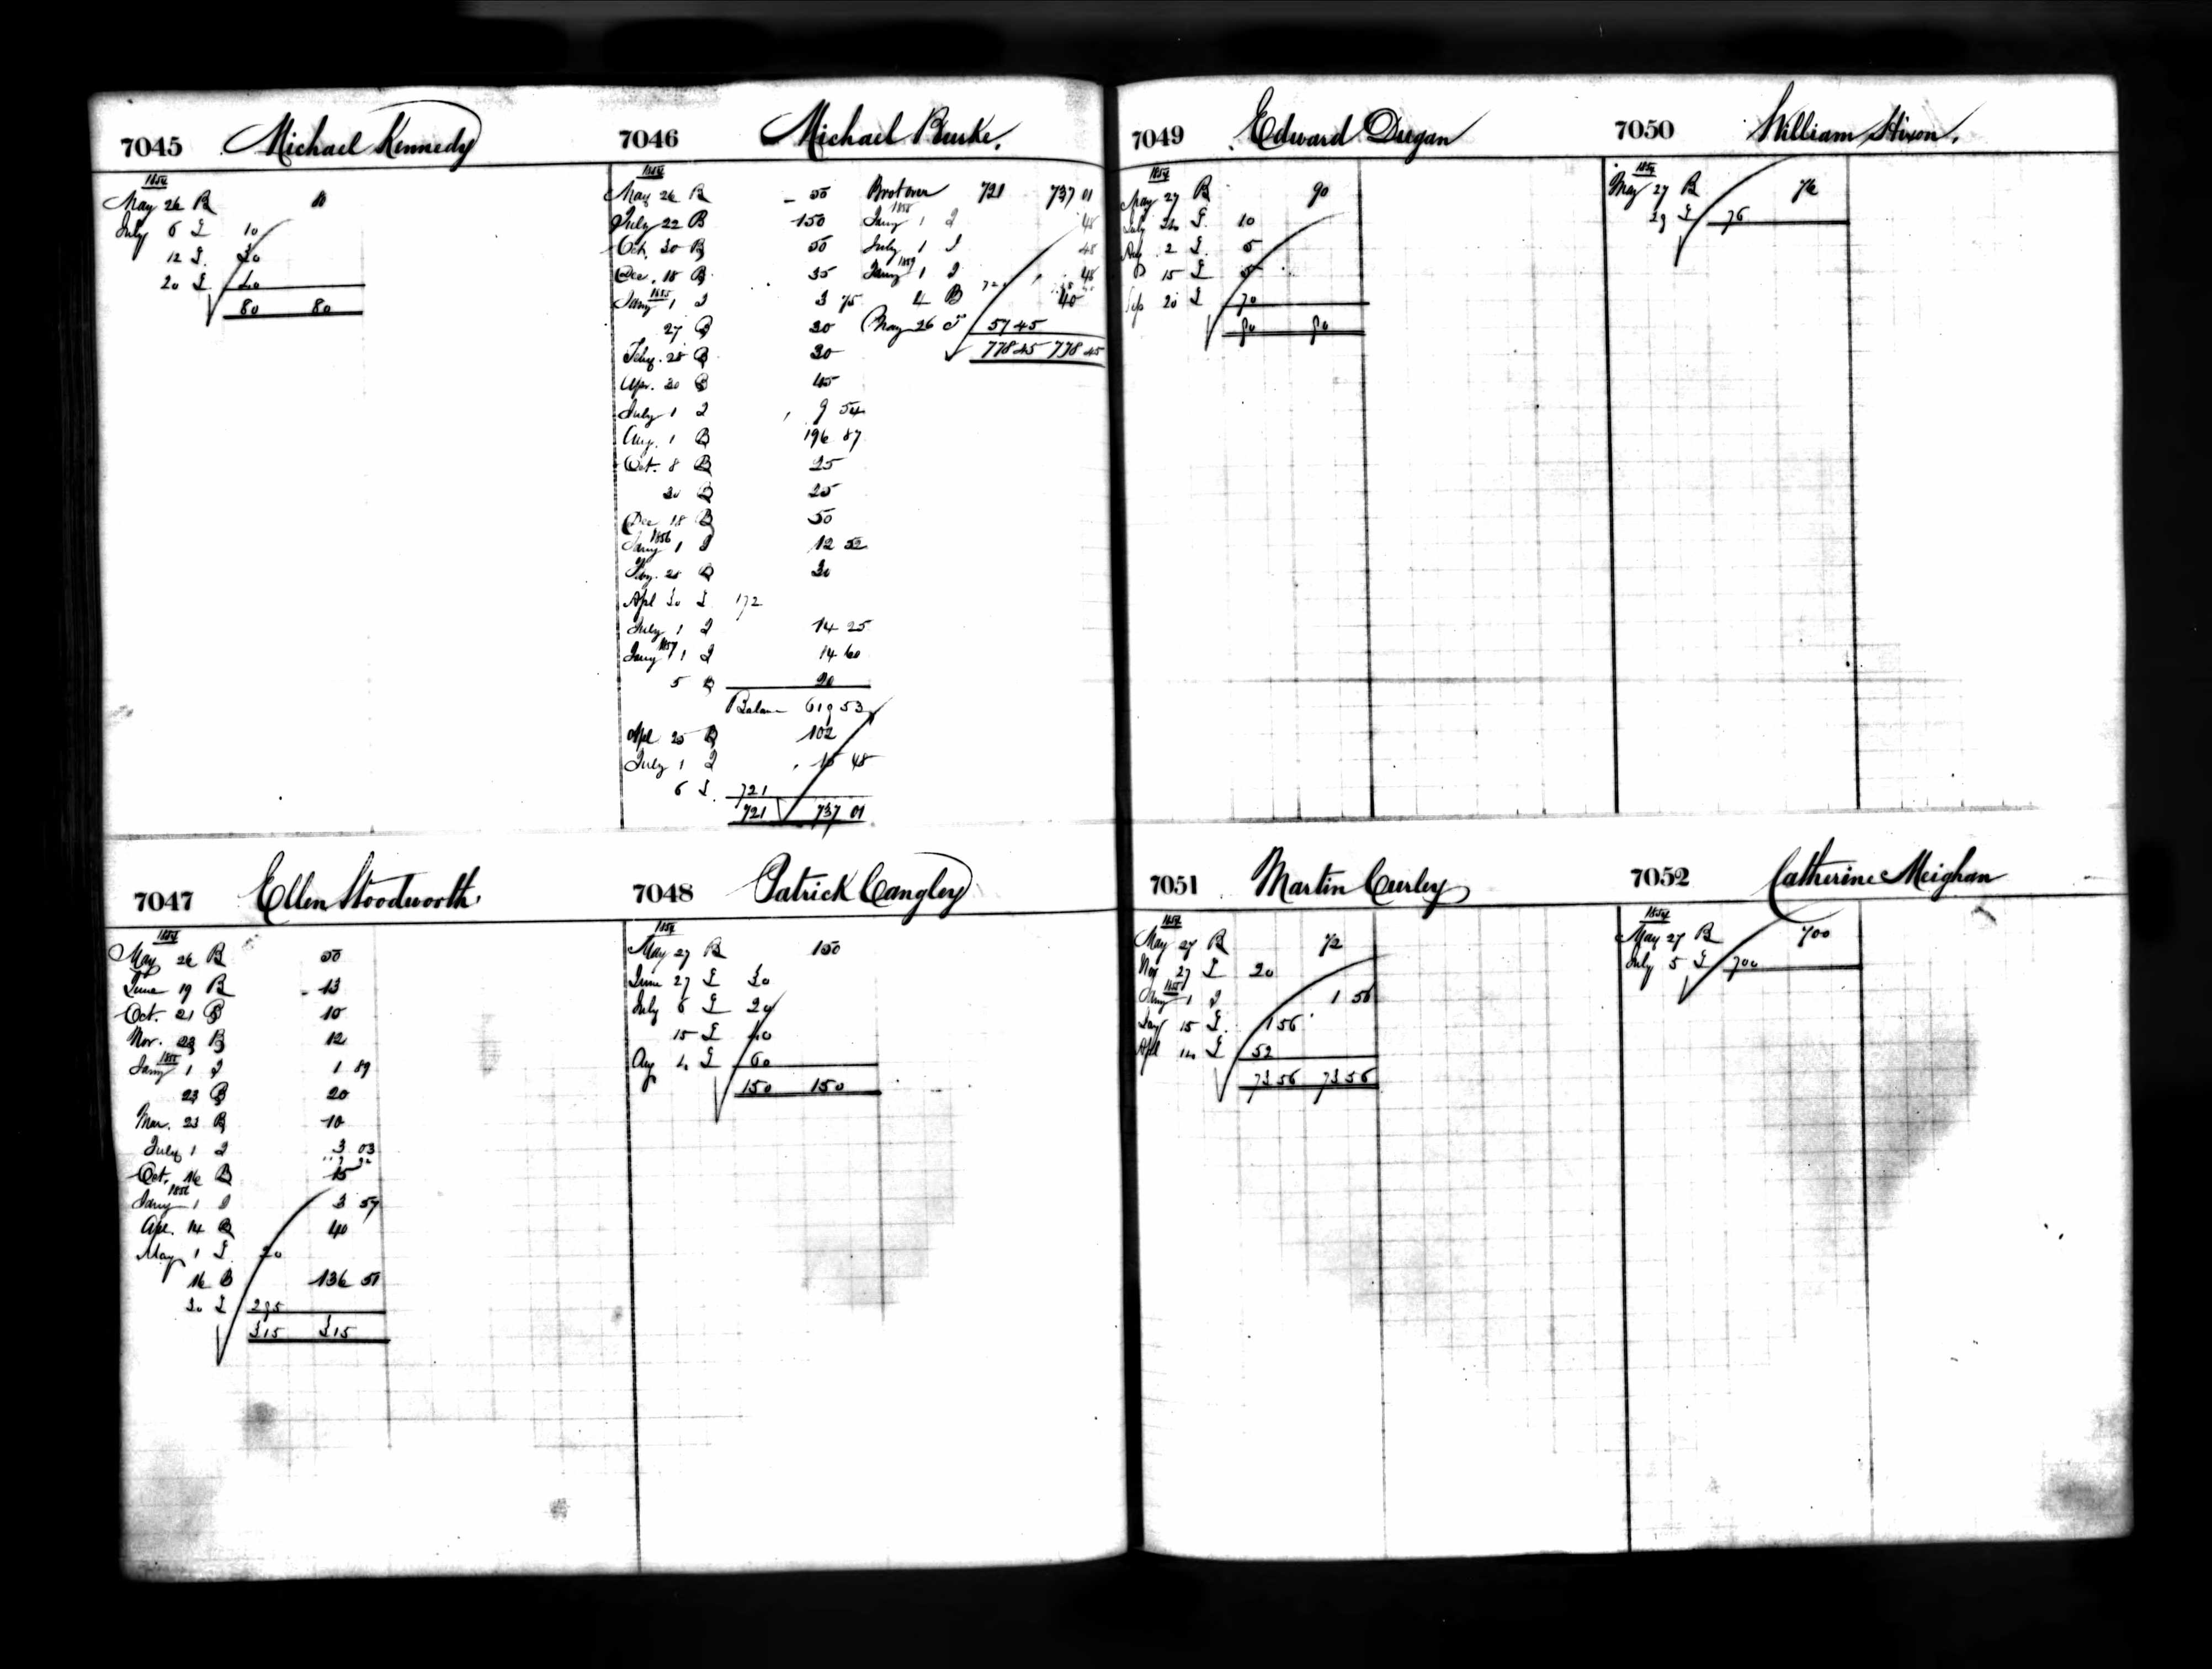 7045 Michael Kennedy
1854
May 26 B 80
July 6 I 10
12 I 30
20 I 40
80 80
7046 Michael Burke.
1854
May 26 B 50
July 22 B 150
Oct. 30 B 50
Dec. 18 B 35
Jany 1855 1 I 3 75
27 B 30
Feby. 28 B 30
Apr. 30 B 45
July 1 I 9 54
Aug. 1 B 196 87
Oct. 8 B 25
20 B 25
Dec 18 B 50
1856
Jany 1 I 12 52
28 B 30
Apl 30 I 172
July 1 I 14 25
1857
Jany 1 I 14 60
5 B 20
Balance 619 53
Apl 25 B 102
July 1 I 15 48
6 I 721
721 737 01
Brot over 721 737 01
Jany 1858 1 I 48
July 1 I 48
Jany 1859 1 I 48
4 B 40
May 26 I 57 45
778 45 778 45
7047 Ellen Woodworth
1854
May 26 B 50
June 19 B 13
Oct. 21 B 10
Nov. 23 B 12
1855
Jany 1 I 1 89
23 B 20
Mar. 23 B 10
July 1 I 3 03
Oct. 16 B 15
1856
Jany 1 I 3 57
Apl. 14 B 40
May 1 I 20
16 B 136 51
30 I 295
315 315
7048 Patrick Cangley
1854
May 27 B 150
June 27 I 30
July 6 I 20
15 I 40
Aug 4 I 60
150 150
7049 Edward Dugan
1854
May 27 B 90
July 24 I 10
Aug 2 I 5
15 I 5
Sep 20 I 70
90 90
7050 William Hixon.
1854
May 27 B 76
29 I 76
7051 Martin Curley
1854
May 27 B 72
Nov 27 I 20
1855
Jany 1 I 1 56
Jany 15 I 1 56
Apl 14 I 52
73 56 73 56
7052 Catherine Meighan
1854
May 27 B 700
July 5 I 700